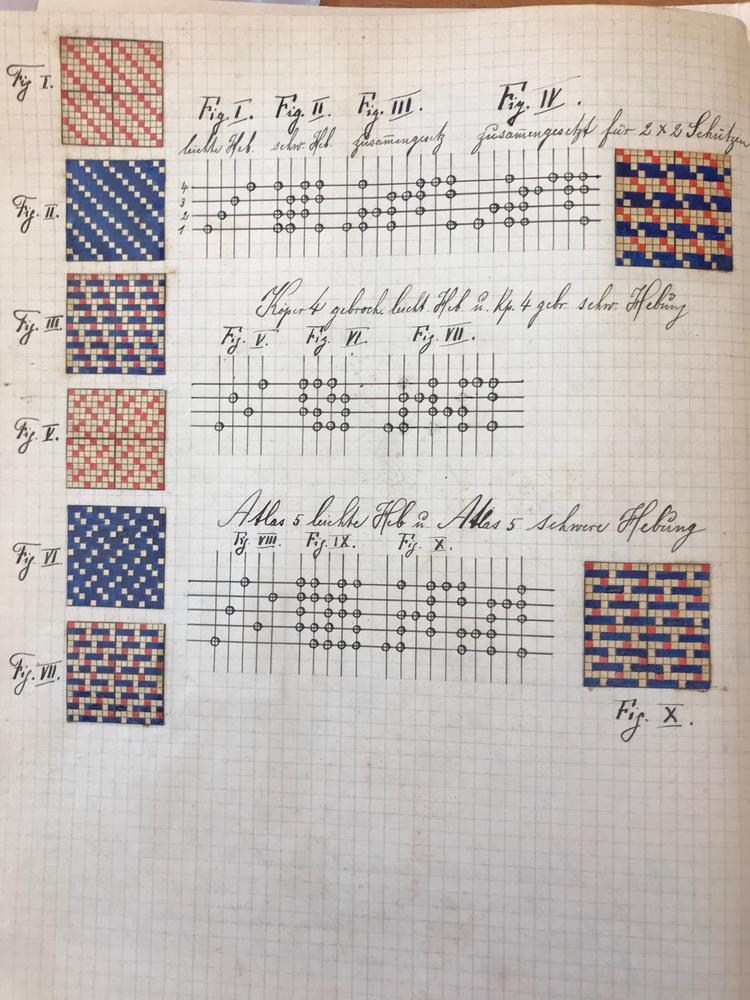 Fig I.
Fig. II.
Fig. III.
Fig. V.
Fig. VI
Fig. VII.
Fig. I. Fig. II Fig. III. Fig. IV.
leichte Heb. schw. Heb. zusam̄engesetz zusam̄engesetzt für 2 x 2 Schützen
4
3
2
1
Köper 4 gebroch. leicht. Heb. u. Kp. 4 gebr. schw. Hebung
Fig. V. Fig. VI. Fig. VII.
Atlas 5 leichte Heb u. Atlas 5 schwere Hebung
Fig. VIII. Fig. IX. Fig. X.
Fig. X.